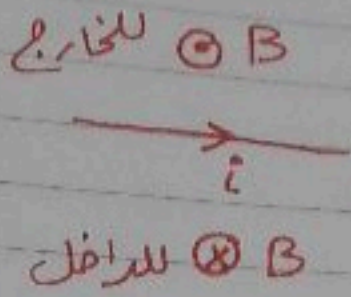 للخارج ⊙ B
i
للداخل ⊗ B